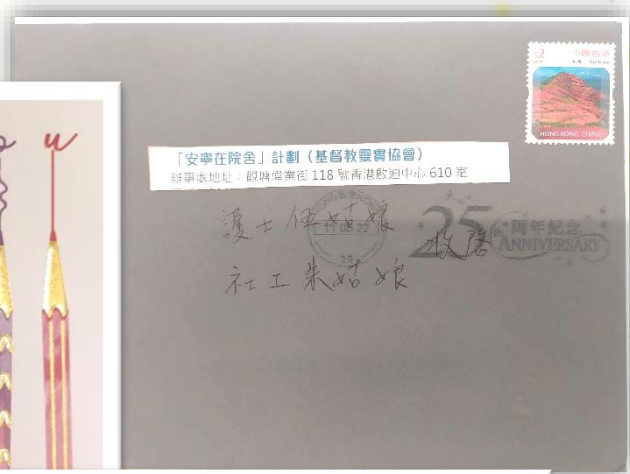 $2
中國香港
HONG KONG, CHINA
「安寧在院舍」計劃（基督教靈實協會）
辦事處地址：觀塘偉業街 118 號香港啟迴中心 610 室
護士傅姑娘
收啓
社工朱姑娘
11 08 22
25
周年紀念
ANNIVERSARY
u